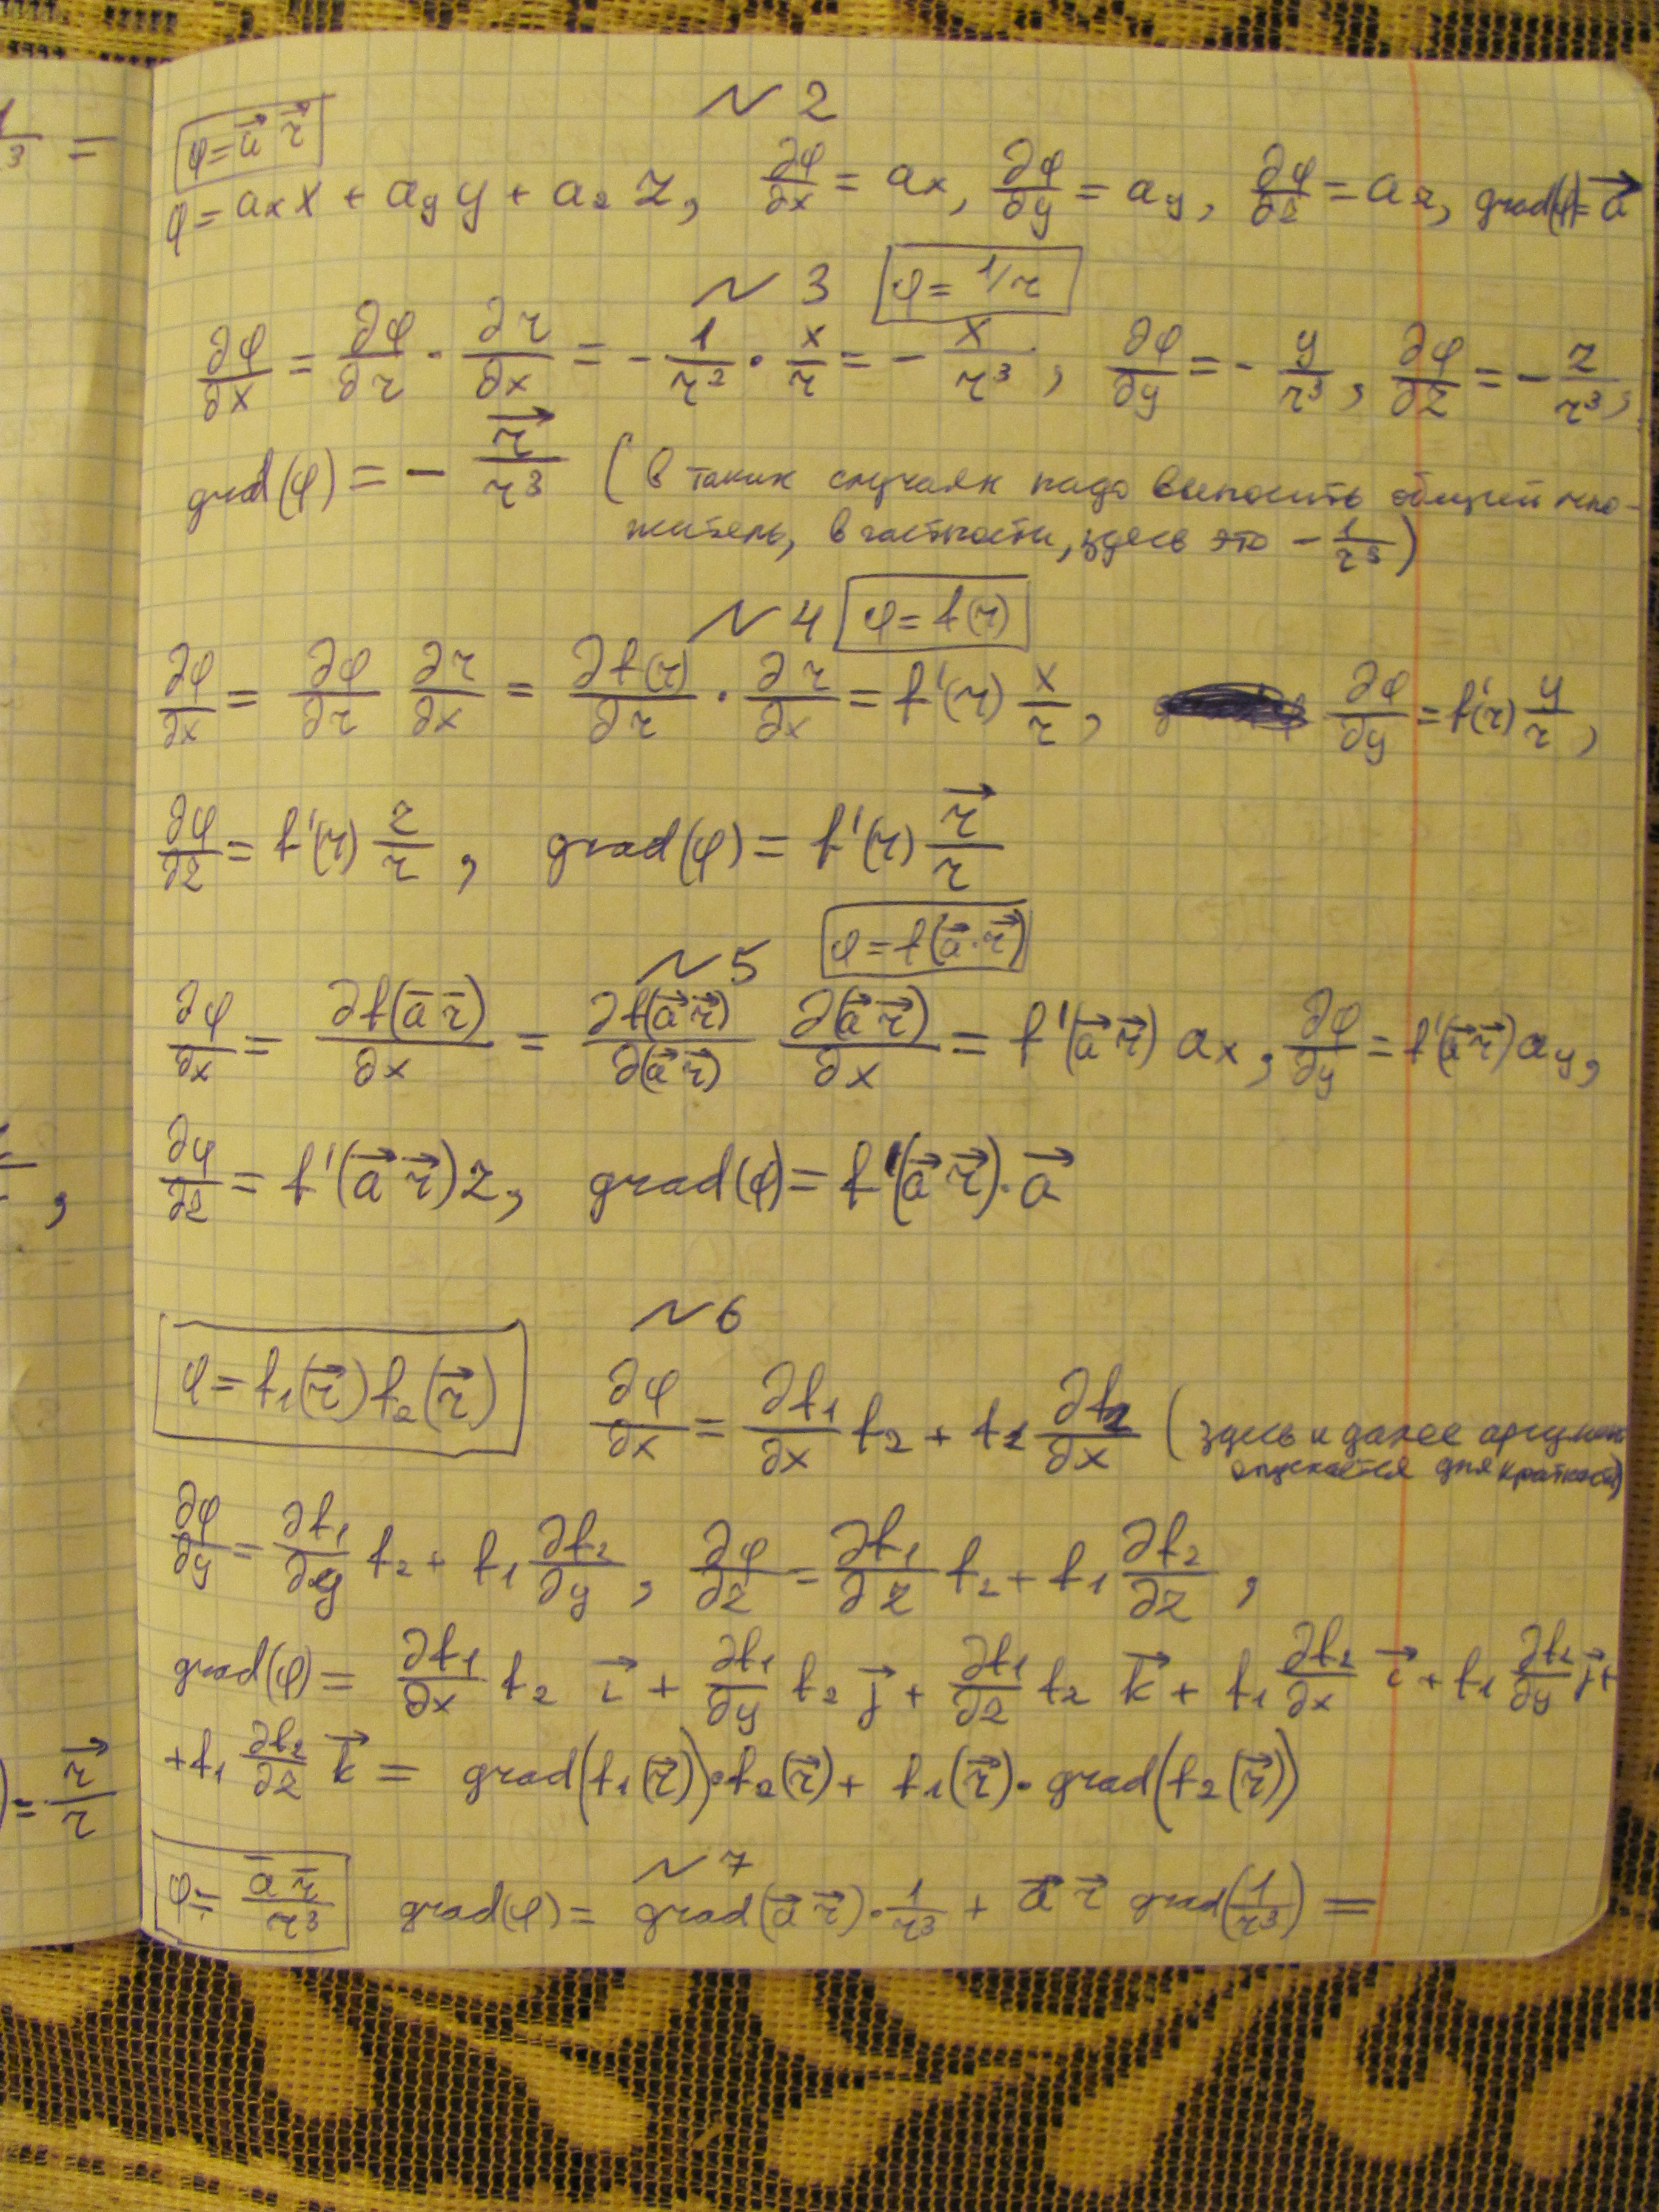 1/3 =
№ 2
φ = a⃗ r⃗
φ = aₓx + a_y y + a_z z, ∂φ/∂x = aₓ, ∂φ/∂y = a_y, ∂φ/∂z = a_z, grad(φ) = a⃗
№ 3 φ = 1/r
∂φ/∂x = ∂φ/∂r · ∂r/∂x = - 1/r² · x/r = - x/r³, ∂φ/∂y = - y/r³, ∂φ/∂z = - z/r³,
grad(φ) = - r⃗/r³ (в таких случаях надо выносить общий мно-
житель, в частности, здесь это - 1/r³)
№ 4 φ = f(r)
∂φ/∂x = ∂φ/∂r ∂r/∂x = ∂f(r)/∂r · ∂r/∂x = f'(r) x/r, ∂φ/∂y = f'(r) y/r,
∂φ/∂z = f'(r) z/r, grad(φ) = f'(r) r⃗/r
№ 5 φ = f(a⃗·r⃗)
∂φ/∂x = ∂f(a̅ r̅)/∂x = ∂f(a⃗ r⃗)/∂(a⃗ r⃗) ∂(a⃗ r⃗)/∂x = f'(a⃗ r⃗) aₓ, ∂φ/∂y = f'(a⃗ r⃗) a_y,
∂φ/∂z = f'(a⃗ r⃗) z, grad(φ) = f'(a⃗ r⃗)·a⃗
№ 6
φ = f₁(r⃗) f₂(r⃗) ∂φ/∂x = ∂f₁/∂x f₂ + f₁ ∂f₂/∂x (здесь и далее аргумент
опускается для краткости)
∂φ/∂y = ∂f₁/∂y f₂ + f₁ ∂f₂/∂y, ∂φ/∂z = ∂f₁/∂z f₂ + f₁ ∂f₂/∂z,
grad(φ) = ∂f₁/∂x f₂ i⃗ + ∂f₁/∂y f₂ j⃗ + ∂f₁/∂z f₂ k⃗ + f₁ ∂f₂/∂x i⃗ + f₁ ∂f₂/∂y j⃗ +
+ f₁ ∂f₂/∂z k⃗ = grad(f₁(r⃗))·f₂(r⃗) + f₁(r⃗)·grad(f₂(r⃗))
) = r⃗/r
№ 7
φ = a̅ r̅/r³ grad(φ) = grad(a⃗ r⃗)·1/r³ + a⃗ r⃗ grad(1/r³) =